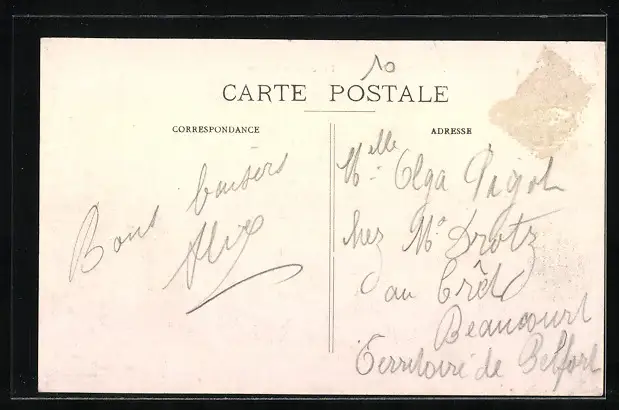 10
CARTE POSTALE
CORRESPONDANCE
Bons baisers
Alix
ADRESSE
Melle Olga Pigot
chez Mr Drotz
au Crêt
Beaucourt
Territoire de Belfort